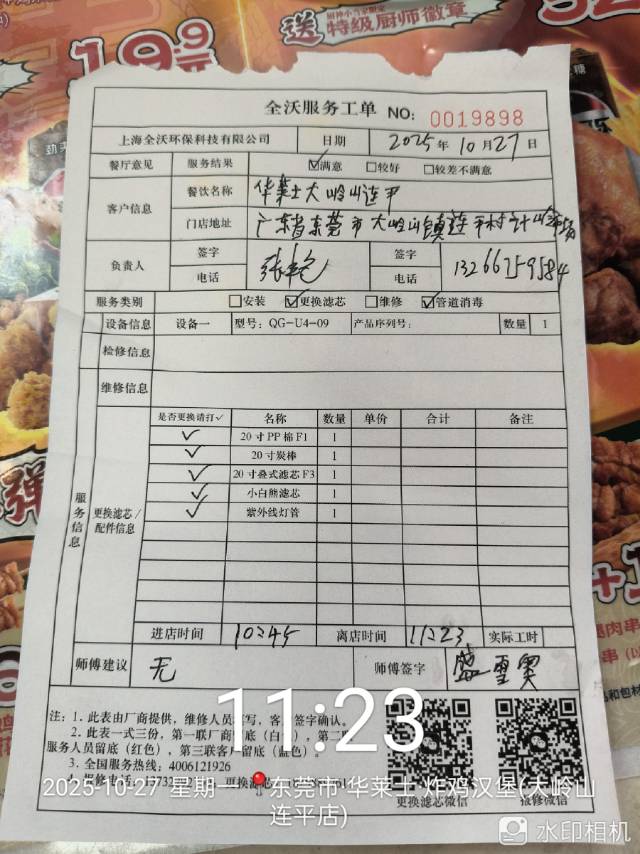 19.9元
送 特级厨师徽章
全沃服务工单 NO: 0019898
上海全沃环保科技有限公司 日期 2025年10月27日
餐厅意见 服务结果 ☑满意 □较好 □较差不满意
客户信息 餐饮名称 华莱士大岭山连平
门店地址 广东省东莞市大岭山镇连平村计岭
负责人 签字 张艳 签字
电话 电话 13266759584
服务类别 □安装 ☑更换滤芯 □维修 ☑管道消毒
服务信息
设备信息 设备一 型号: QG-U4-09 产品序列号: 数量 1
检修信息
维修信息
更换滤芯/配件信息
是否更换请打✓ 名称 数量 单价 合计 备注
✓ 20寸PP棉F1 1
✓ 20寸炭棒 1
✓ 20寸叠式滤芯F3 1
✓ 小白熊滤芯 1
✓ 紫外线灯管 1
进店时间 10:45 离店时间 11:23 实际工时
师傅建议 无 师傅签字 盛
11:23
注: 1、此表由厂商提供, 维修人员填写, 客 签字确认。
2、此表一式三份, 第一联厂商留底(白 ), 第二
服务人员留底(红色), 第三联客户留底(蓝色)。
3、全国服务热线: 4006121926
更换滤芯微信 报修微信
2025-10-27 星期一 东莞市·华莱士·炸鸡汉堡(大岭山
连平店)
水印相机